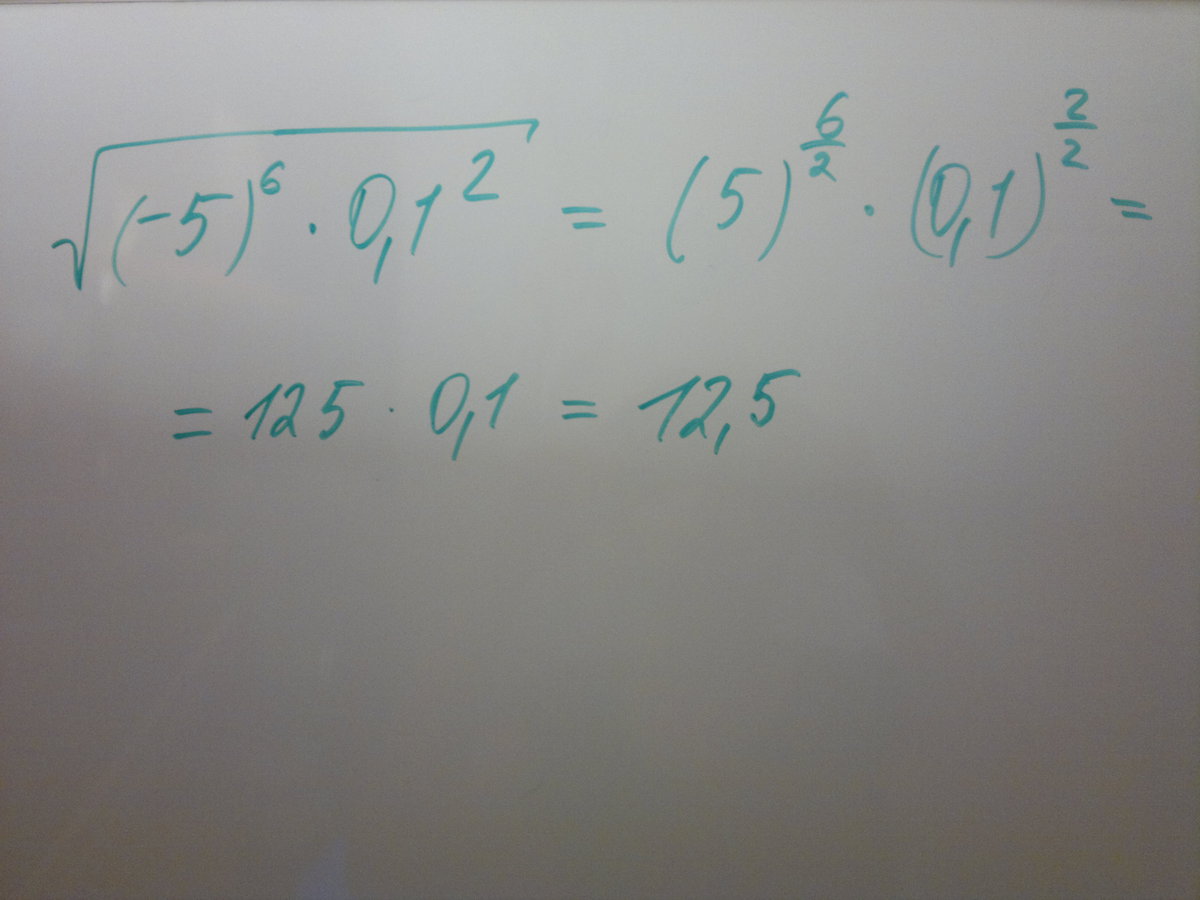 √((-5)⁶ · 0,1²) = (5)^(6/2) · (0,1)^(2/2) =
= 125 · 0,1 = 12,5